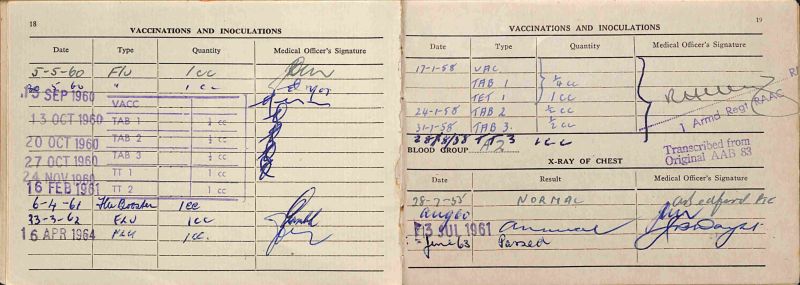 18
VACCINATIONS AND INOCULATIONS
Date Type Quantity Medical Officer's Signature
5-5-60 FLU 1 cc
" 1 cc
15 SEP 1960
VACC
13 OCT 1960 TAB 1 ¼ cc
20 OCT 1960 TAB 2 ½ cc
27 OCT 1960 TAB 3 ½ cc
24 NOV 1960 TT 1 1 cc
16 FEB 1961 TT 2 1 cc
6-4-61 Flu Booster 1cc
23-3-62 FLU 1cc
16 APR 1964 FLU 1cc.
19
VACCINATIONS AND INOCULATIONS
Date Type Quantity Medical Officer's Signature
17-1-58 VAC
TAB 1 ¼ cc
TET 1 1 cc
24-1-58 TAB 2 ½ cc
31-1-58 TAB 3. ½ cc
1 Armd Regt RAAC
28/8/58 TT 3 1cc
BLOOD GROUP A2
Transcribed from
Original AAB 83
X-RAY OF CHEST
Date Result Medical Officer's Signature
NORMAL
Aug 60
13 JUL 1961 Annual
June 63 Passed